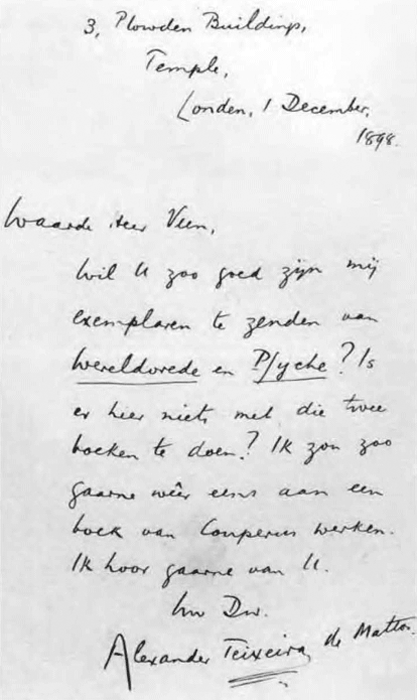 3, Plowden Buildings,
Temple,
Londen, 1 December,
1898.
Waarde Heer Veen,
Wil U zoo goed zijn mij
exemplaren te zenden van
Wereldvrede en Psyche? Is
er hier niets met die twee
boeken te doen? Ik zou zoo
gaarne wêer eens aan een
boek van Couperus werken.
Ik hoor gaarne van U.
Uw Dw.
Alexander Teixeira de Mattos.